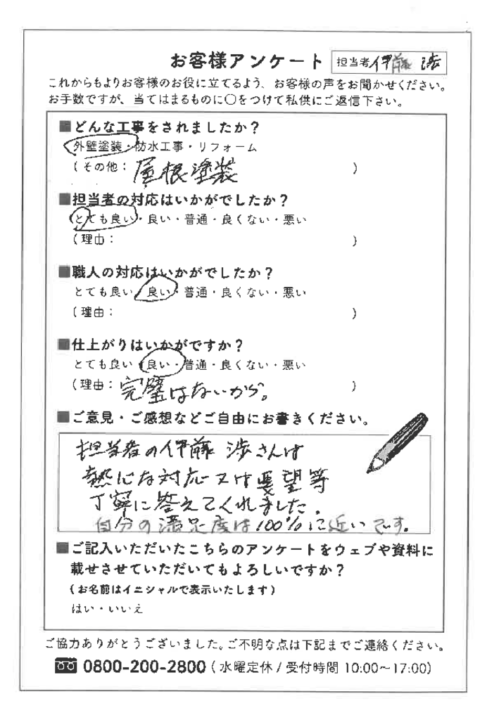 お客様アンケート 担当者 伊藤 渉
これからもよりお客様のお役に立てるよう、お客様の声をお聞かせください。
お手数ですが、当てはまるものに○をつけて私供にご返信下さい。
■どんな工事をされましたか？
外壁塗装・防水工事・リフォーム
（その他： 屋根塗装 ）
■担当者の対応はいかがでしたか？
とても良い・良い・普通・良くない・悪い
（理由： ）
■職人の対応はいかがでしたか？
とても良い・良い・普通・良くない・悪い
（理由： ）
■仕上がりはいかがですか？
とても良い・良い・普通・良くない・悪い
（理由： 完璧はないから。 ）
■ご意見・ご感想などご自由にお書きください。
担当者の伊藤 渉さんは
熱心な対応又は要望等
丁寧に答えてくれました。
自分の満足度は100%に近いです。
■ご記入いただいたこちらのアンケートをウェブや資料に
載せさせていただいてもよろしいですか？
（お名前はイニシャルで表示いたします）
はい・いいえ
ご協力ありがとうございました。ご不明な点は下記までご連絡ください。
0800-200-2800（水曜定休/受付時間 10:00～17:00）